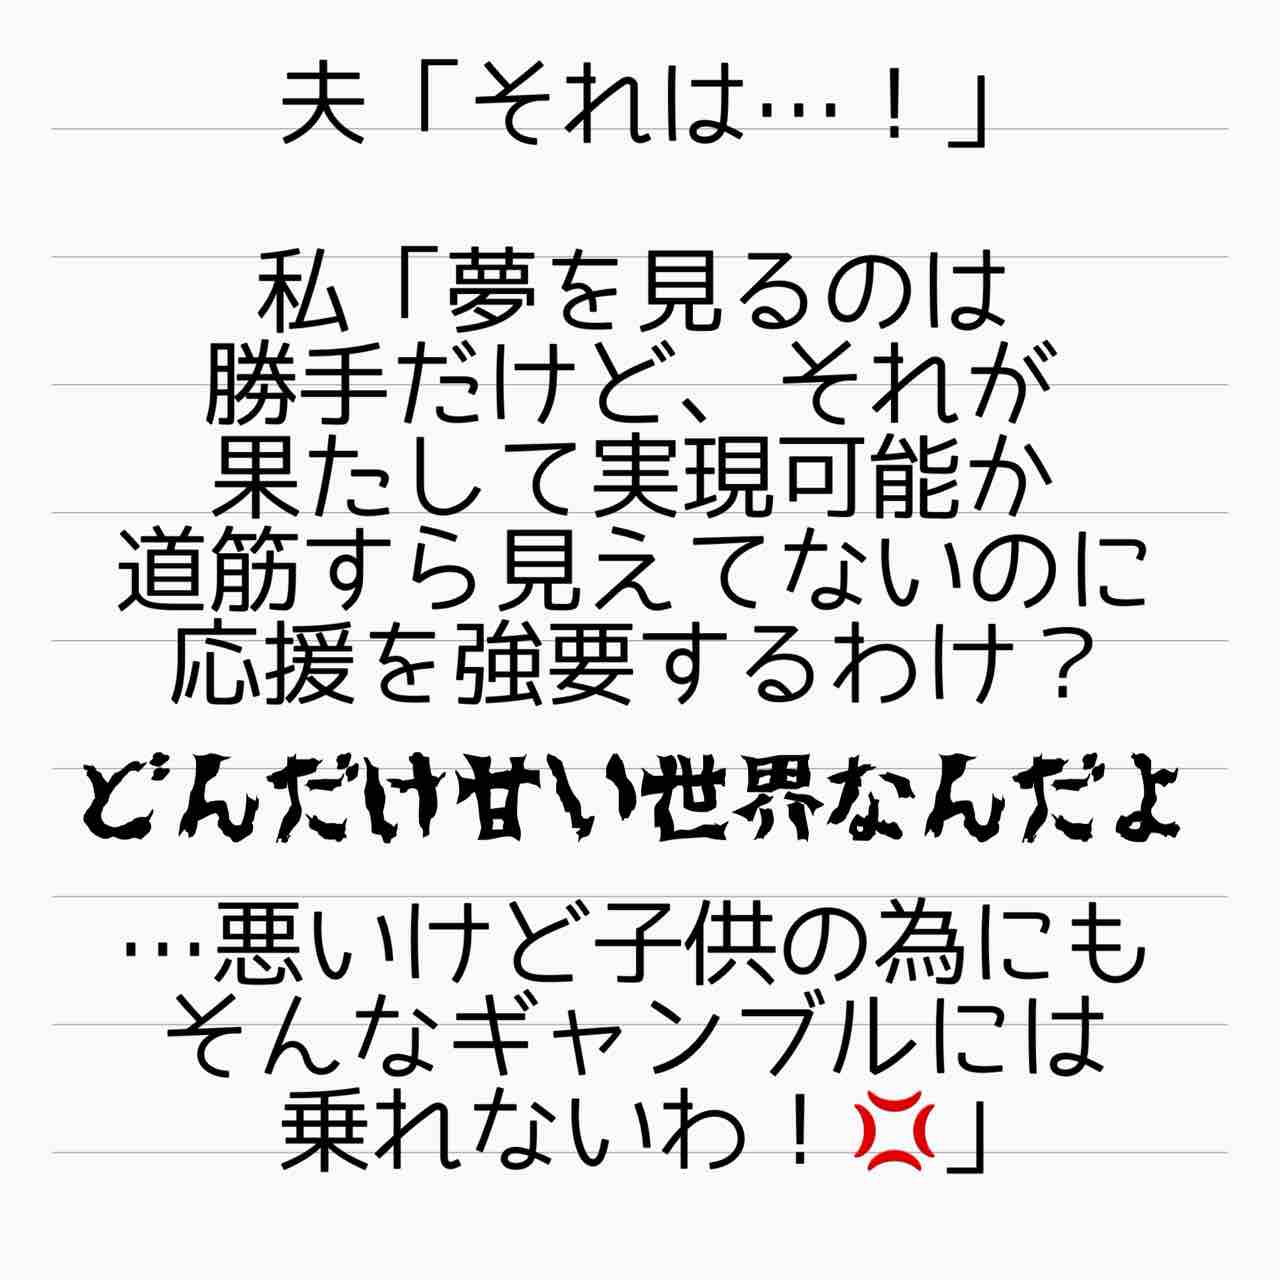 夫「それは…！」
私「夢を見るのは
勝手だけど、それが
果たして実現可能か
道筋すら見えてないのに
応援を強要するわけ？
どんだけ甘い世界なんだよ
…悪いけど子供の為にも
そんなギャンブルには
乗れないわ！💢」